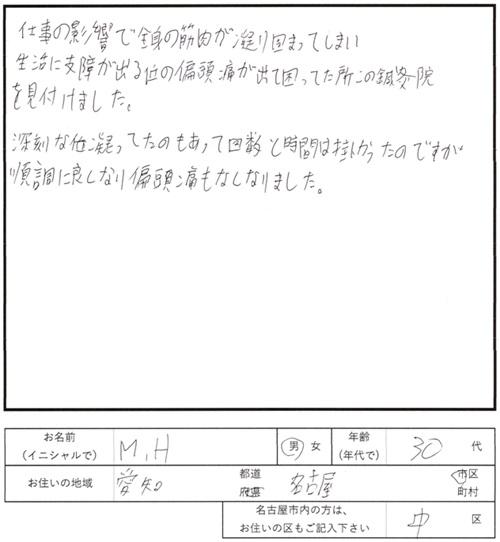 仕事の影響で全身の筋肉が凝り固まってしまい
生活に支障が出る位の偏頭痛が出て困ってた所この鍼灸院
を見付けました。
深刻な位凝ってたのもあって回数と時間は掛かったのですが
順調に良くなり偏頭痛もなくなりました。
お名前
(イニシャルで)
M.H
男 女
年齢
(年代で)
30 代
お住いの地域
愛知
都道
府県
名古屋
市区
町村
名古屋市内の方は、
お住いの区もご記入下さい
中 区